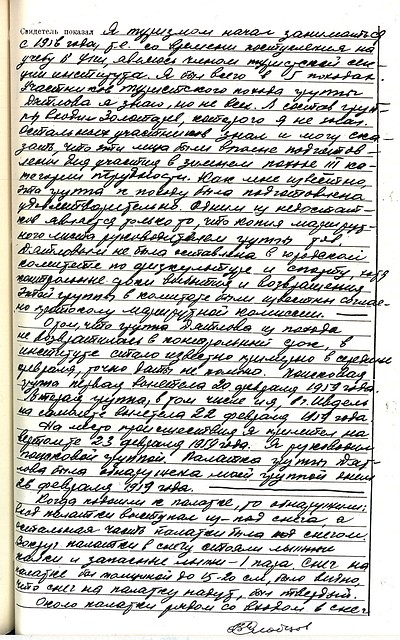 Свидетель показал Я туризмом начал заниматься
с 1956 года, т.е. со времени поступления на
учебу в УПИ, являюсь членом туристской сек-
ции института. Я был всего в 5 походах.
Участников туристского похода группы
Дятлова я знаю, но не всех. В состав груп-
пы входил Золотарев, которого я не знал.
Остальных участников знал и могу ска-
зать, что эти лица были вполне подготов-
лены для участия в зимнем походе III ка-
тегории трудности. Как мне известно,
эта группа к походу была подготовлена
удовлетворительно. Одним из недостат-
ков является только то, что копия маршрут-
ного листа руководителем группы т.
Дятловым не была оставлена в городском
комитете по физкультуре и спорту, хотя
контрольные сроки выхода и возвращения
этой группы в комитете были известны соглас-
но протоколу маршрутной комиссии.
О том, что группа Дятлова из похода
не возвратилась в контрольный срок, в
институте стало известно примерно в середине
февраля, точно даты не помню. Поисковая
группа первая вылетела 20 февраля 1959 года.
Вторая группа, в том числе и я, в г. Ивдель
на самолете вылетела 22 февраля 1959 года
На место происшествия я прилетел на
вертолете 23 февраля 1959 года. Я руководил
поисковой группой. Палатка группы Дят-
лова была обнаружена моей группой днем
26 февраля 1959 года.
Когда подошли к палатке, то обнаружили:
вход палатки выступал из-под снега, а
остальная часть палатки была под снегом.
Вокруг палатки в снегу стояли лыжные
палки и запасные лыжи - 1 пара. Снег на
палатке был толщиной до 15-20 см, было видно,
что снег на палатку надут, был твердый.
Около палатки рядом со входом в снег